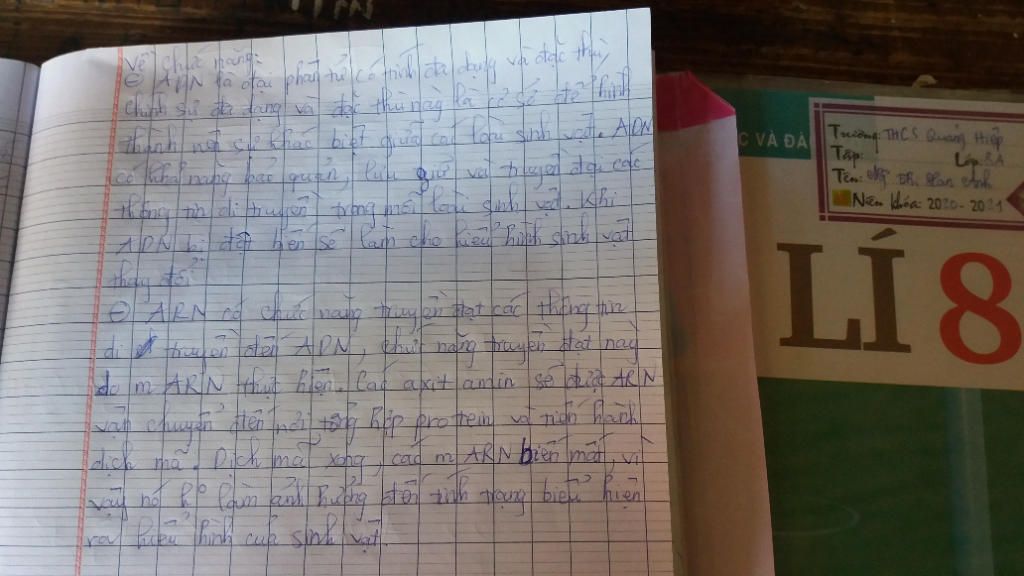 Về chức năng:
⊖ ADN là đại phân tử có tính đa dạng và đặc thù,
chính sự đa dạng và đặc thù này là cơ sở để hình
thành nên sự khác biệt giữa các loài sinh vật. ADN
có khả năng bảo quản, lưu giữ và truyền đạt các
thông tin di truyền trong mỗi loài sinh vật. Khi
ADN bị đột biến sẽ làm cho kiểu hình sinh vật
thay đổi
⊖ ARN có chức năng truyền đạt các thông tin
di truyền đến ADN, chức năng truyền đạt này
do mARN thực hiện. Các axit amin sẽ được ARN
vận chuyển đến nơi tổng hợp protein và tiến hành
dịch mã. Dịch mã xong, các mARN biến mất, vì
vậy nó ko làm ảnh hưởng đến tính trạng biểu hiện
ra kiểu hình của sinh vật.
C VÀ ĐÀ
Trường: THCS Quảng Hiệp
Tập: Lớp: 8A
Tên: Anh
Niên khóa: 2020-2021
LÍ 8